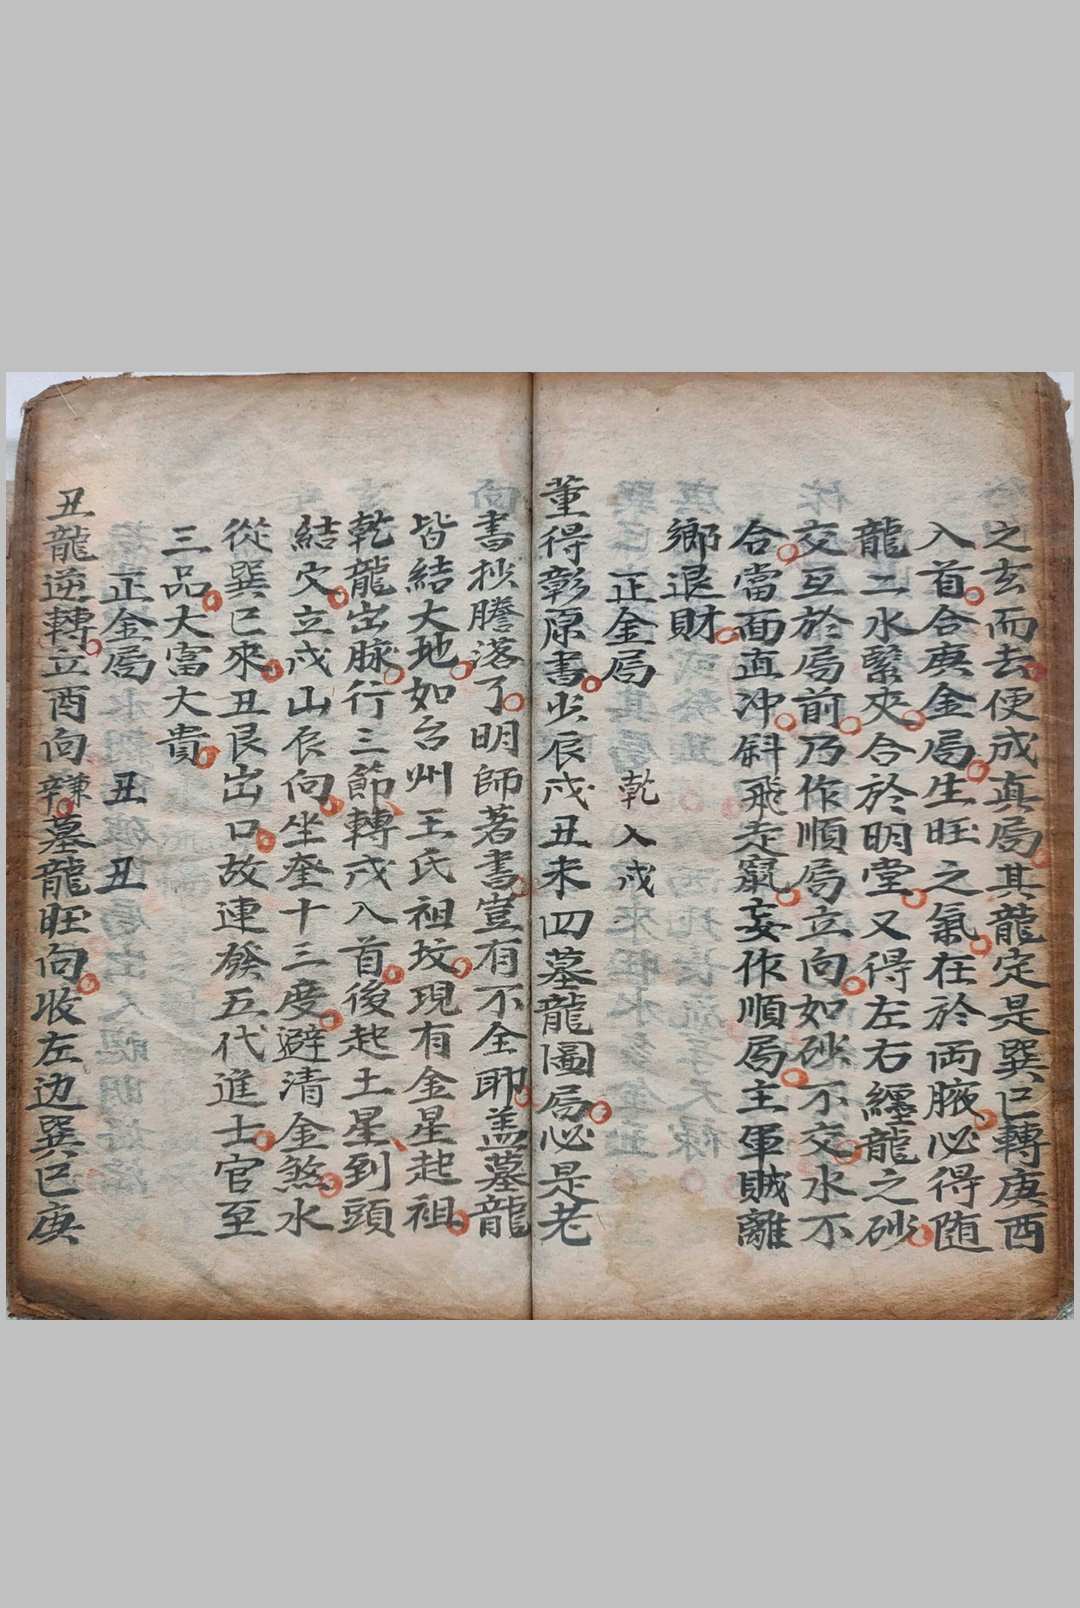 之玄而去便成真局其龍定是巽巳轉庚酉
入首合庚金局生旺之氣在於両腋必得随
龍二水緊夾合於明堂又得左右纒龍之砂
交互於局前乃作順局立向如砂不交水不
合當面直冲斜飛走竄妄作順局主軍賊離
鄉退財
正金局 乾入戌
董得彰原書少辰戌丑未四墓龍圖局必是老
書抄謄落了明師著書豈有不全耶盖墓龍
皆結大地如台州王氏祖坟現有金星起祖
乾龍出脉行三節轉戌入首後起土星到頭
結穴立戌山辰向坐奎十三度避清金煞水
從巽巳來丑艮出口故連發五代進士官至
三品大富大貴
正金局 丑丑
丑龍逆轉立酉向辣墓龍旺向收左边巽巳庚